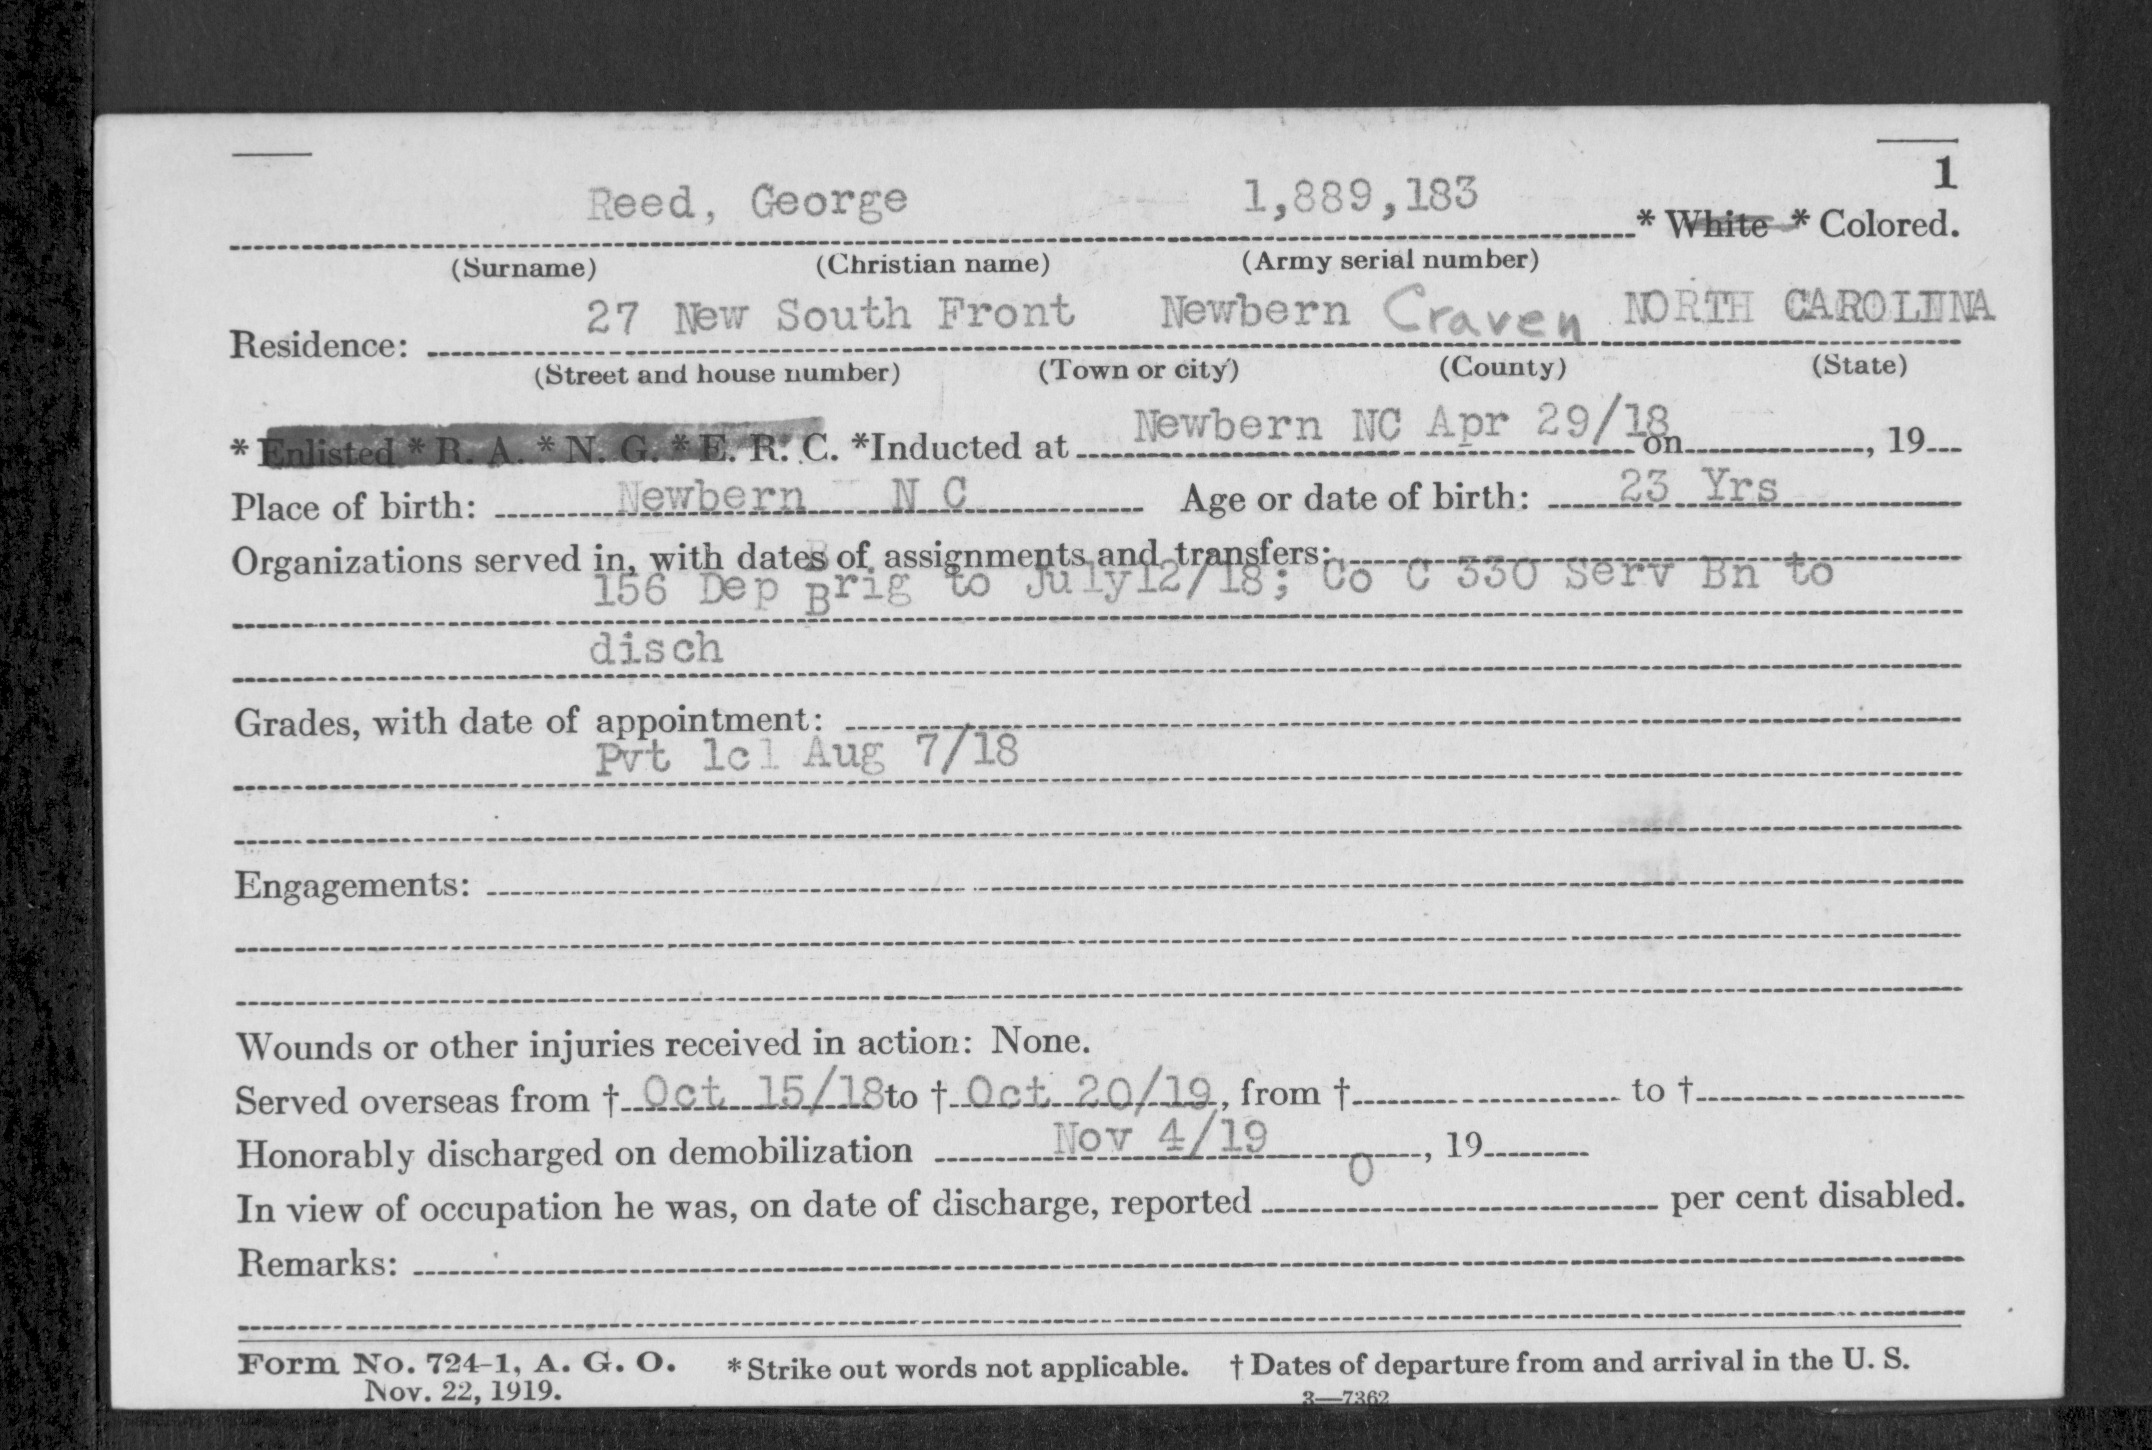 1
Reed, George 1,889,183 * White * Colored.
(Surname) (Christian name) (Army serial number)
Residence: 27 New South Front Newbern Craven NORTH CAROLINA
(Street and house number) (Town or city) (County) (State)
* Enlisted * R. A. * N. G. * E. R. C. *Inducted at Newbern NC Apr 29/18 on , 19
Place of birth: Newbern N C Age or date of birth: 23 Yrs
Organizations served in, with dates of assignments and transfers:
156 Dep Brig to July12/18; Co C 330 Serv Bn to
disch
Grades, with date of appointment:
Pvt 1cl Aug 7/18
Engagements:
Wounds or other injuries received in action: None.
Served overseas from † Oct 15/18 to † Oct 20/19, from † to †
Honorably discharged on demobilization Nov 4/19 , 19
In view of occupation he was, on date of discharge, reported 0 per cent disabled.
Remarks:
Form No. 724-1, A. G. O. * Strike out words not applicable. † Dates of departure from and arrival in the U. S.
Nov. 22, 1919. 3—7362